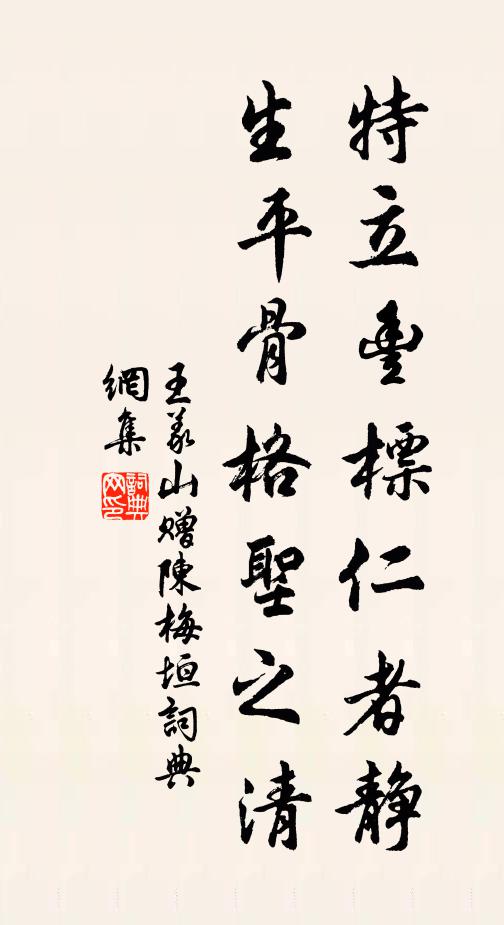 特立豐標仁者靜
生平骨格聖之清
王義山贈陳梅垣詞典
網集
詞典
网印